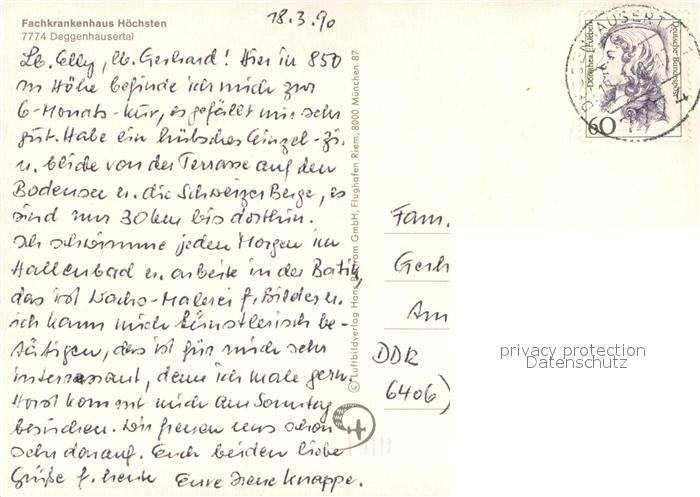 18.3.90
Fachkrankenhaus Höchsten
7774 Deggenhausertal
Lb. Elly, lb. Gerhard! Hier in 850
m Höhe befinde ich mich zur
6-Monats-Kur, es gefällt mir sehr
gut. Habe ein hübsches Einzel-Zi.
u. blicke von der Terrasse auf den
Bodensee u. die Schweizer Berge, es
sind nur 30 km bis dorthin.
Ich schwimme jeden Morgen im
Hallenbad u. arbeite in der Batik,
das ist Wachs-Malerei f. Bilder u.
ich kann mich künstlerisch be-
tätigen, das ist für mich sehr
interessant, denn ich male gern.
Horst kommt mich am Sonntag
besuchen. Wir freuen uns schon
sehr darauf. Euch beiden liebe
Grüße f. heute Eure Irene Knappe.
© Luftbildverlag Hans Bertram GmbH, Flughafen Riem, 8000 München 87
Deutsche Bundespost
60
Fam.
Gerh
Am
DDR
6406)
privacy protection
Datenschutz